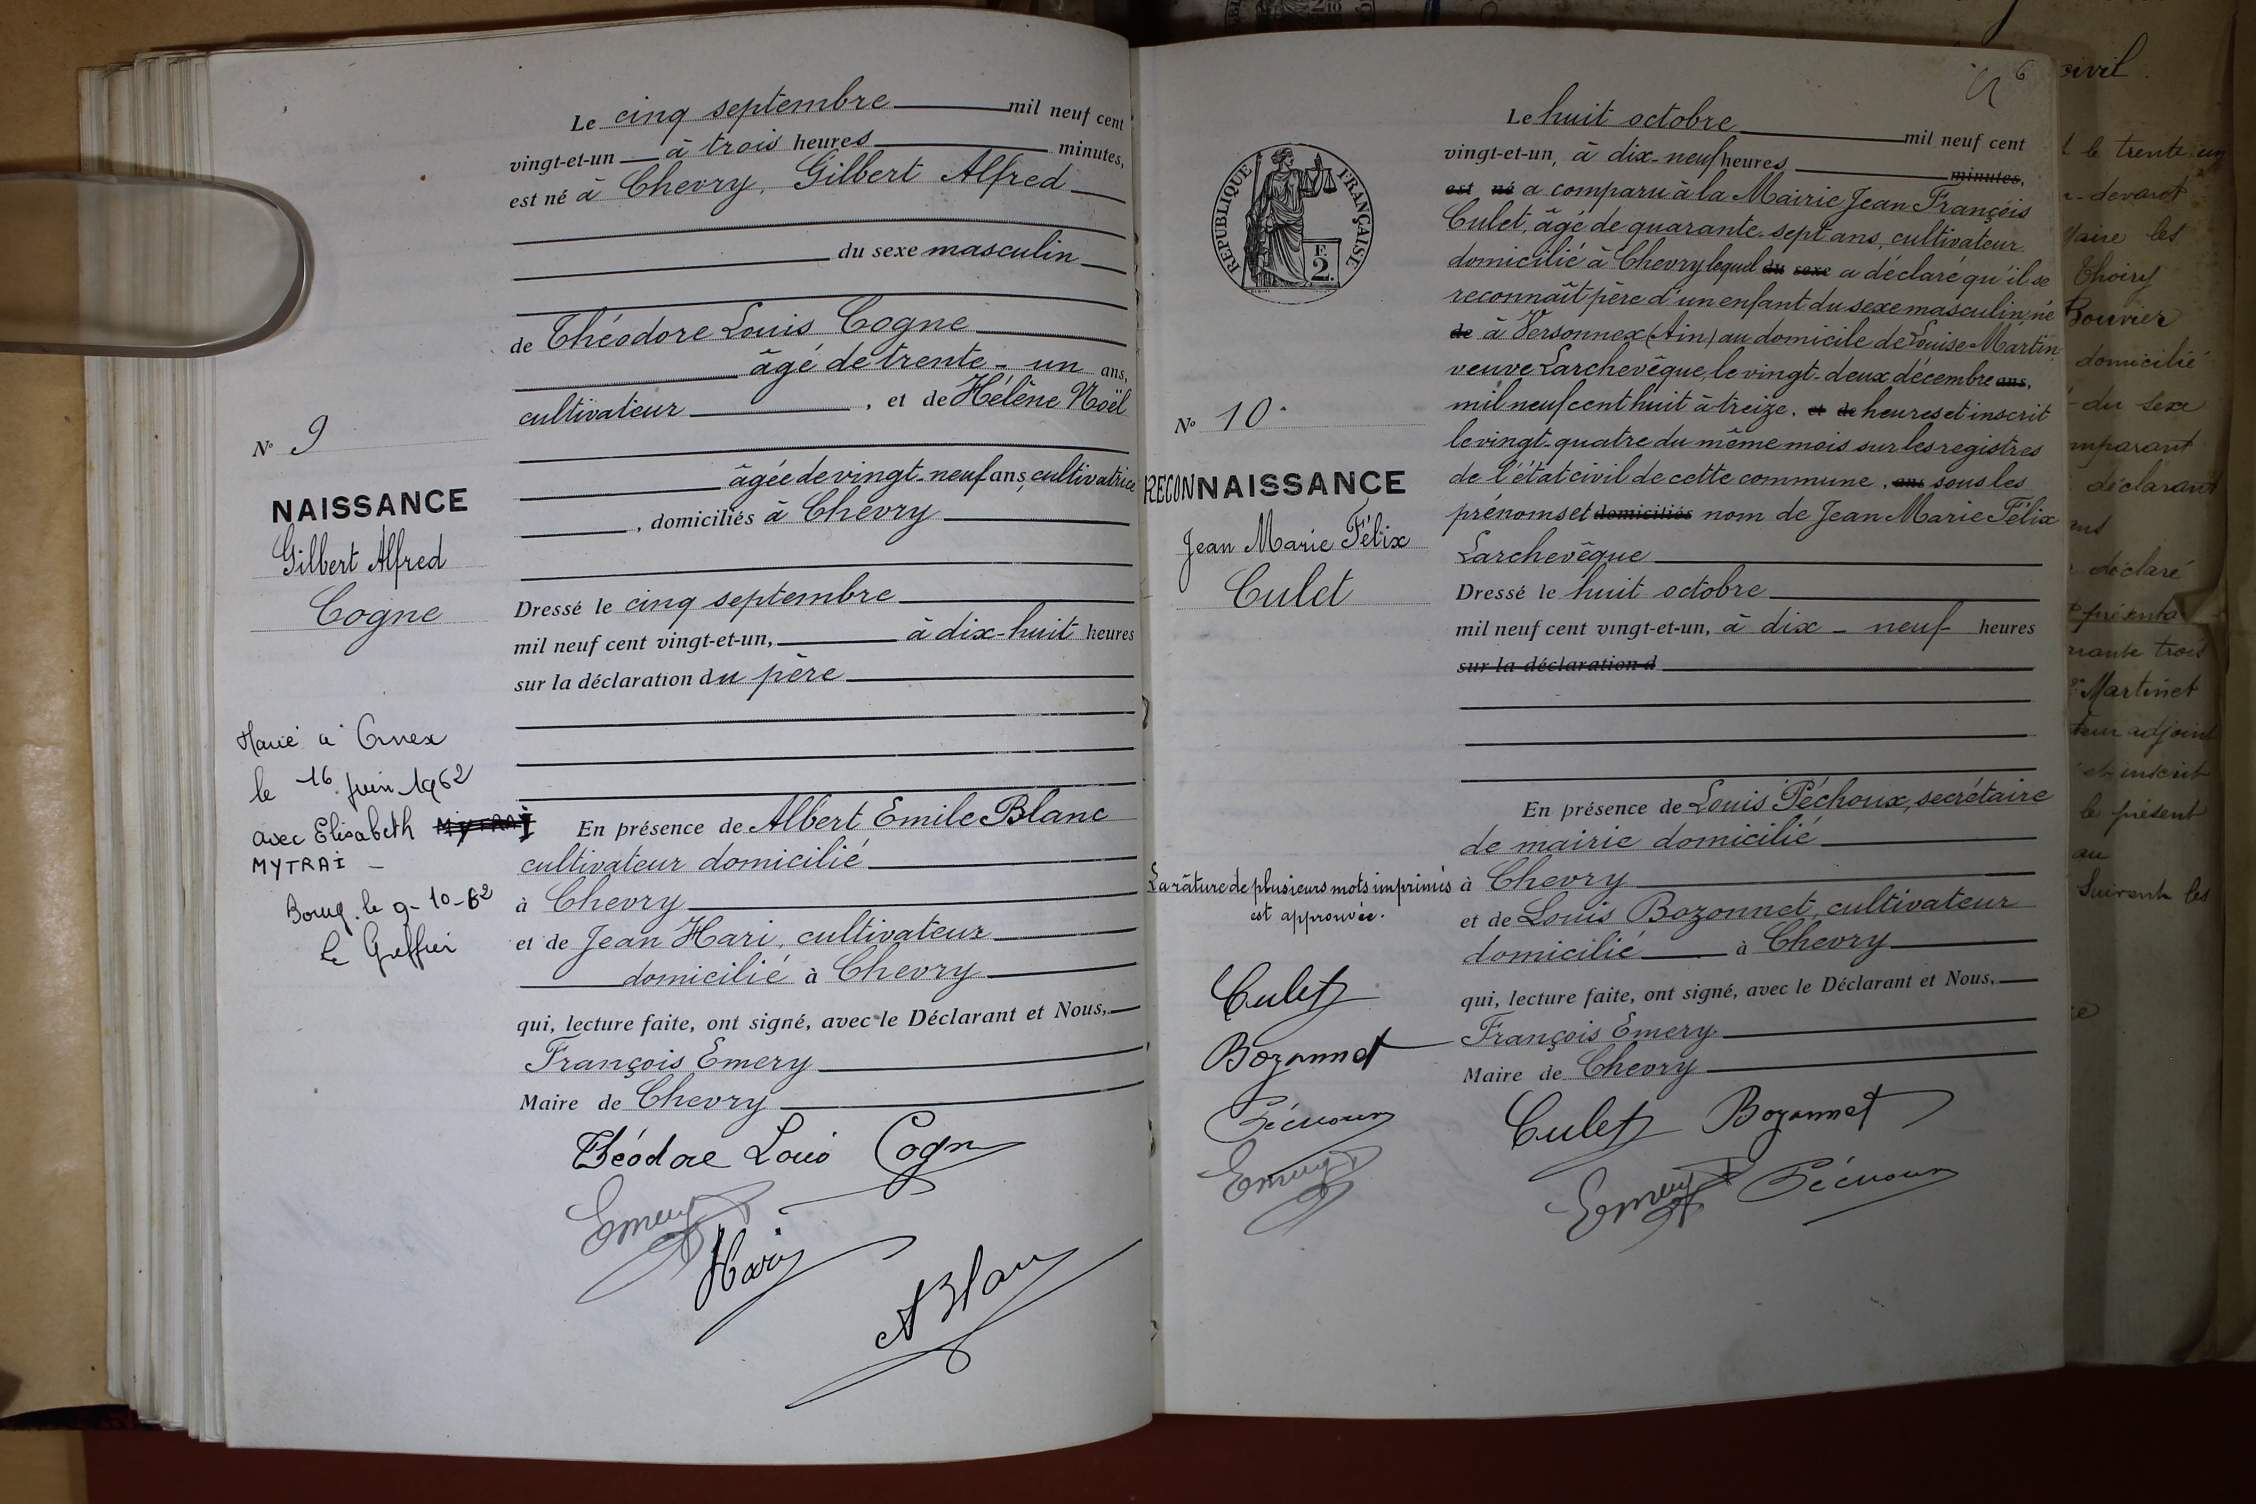 Le cinq septembre mil neuf cent
vingt-et-un à trois heures minutes,
est né à Chevry, Gilbert Alfred
du sexe masculin
de Théodore Louis Cogne
âgé de trente-un ans,
cultivateur, et de Hélène Noël
âgée de vingt-neuf ans, cultivatrice
, domiciliés à Chevry
Dressé le cinq septembre
mil neuf cent vingt-et-un, à dix-huit heures
sur la déclaration du père
En présence de Albert Emile Blanc
cultivateur domicilié
à Chevry
et de Jean Hari, cultivateur
domicilié à Chevry
qui, lecture faite, ont signé, avec le Déclarant et Nous,
François Emery
Maire de Chevry
Théodore Louis Cogne
Emery
Hari
A Blanc
N° 9
NAISSANCE
Gilbert Alfred
Cogne
Marié à Ornex
le 16 juin 1962
avec Elisabeth MYTRAI
MYTRAI
Bourg, le 9-10-62
Le Greffier
6
Le huit octobre mil neuf cent
vingt-et-un, à dix-neuf heures minutes,
est né a comparu à la Mairie Jean François
Culet, âgé de quarante-sept ans, cultivateur
domicilié à Chevry lequel du sexe a déclaré qu'il se
reconnaît père d'un enfant du sexe masculin, né
de à Versonnex (Ain) au domicile de Louise Martin
veuve Larchevêque, le vingt-deux décembre ans,
mil neuf cent huit à treize, et de heures et inscrit
le vingt-quatre du même mois sur les registres
de l'état civil de cette commune, ans sous les
prénoms et domiciliés nom de Jean Marie Félix
Larchevêque
Dressé le huit octobre
mil neuf cent vingt-et-un, à dix-neuf heures
sur la déclaration d
En présence de Louis Péchoux, secrétaire
de mairie domicilié
à Chevry
et de Louis Bozonnet, cultivateur
domicilié à Chevry
qui, lecture faite, ont signé, avec le Déclarant et Nous,
François Emery
Maire de Chevry
Culet Bozonnet
Emery Péchoux
RÉPUBLIQUE FRANÇAISE
F.
2.
N° 10
RECONNAISSANCE
Jean Marie Félix
Culet
La râture de plusieurs mots imprimés
est approuvée.
Culet
Bozonnet
Péchoux
Emery
civil
le trente un
devant
les
Thoiry
Bouvier
domicilié
du sexe
déclarant
déclaré
trois
Martinet
adjoint
et inscrit
le présent
au
suivant les